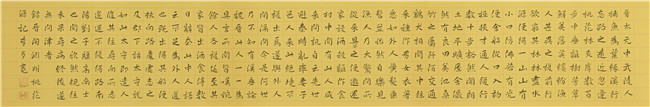 晉太元中武陵人
捕魚為業緣溪行
忘路之遠近忽逢
桃花林夾岸數百
步中無雜樹芳草
鮮美落英繽紛漁
人甚異之復前行
欲窮其林林盡水
源便得一山山有
小口仿佛若有光
便舍船從口入初
極狹才通人復行
數十步豁然開朗
土地平曠屋舍儼
然有良田美池桑
竹之屬阡陌交通
雞犬相聞其中往
來種作男女衣著
悉如外人黃髮垂
髫並怡然自樂見
漁人乃大驚問所
從來具答之便要
還家設酒殺雞作
食村中聞有此人
咸來問訊自云先
世避秦時亂率妻子
邑人來此絕境不
復出焉遂與外人
間隔問今是何世
乃不知有漢無論
魏晉此人一一為
具言所聞皆歎惋
餘人各復延至其
家皆出酒食停數
日辭去此中人語
云不足為外人道
也既出得其船便
扶向路處處志之
及郡下詣太守說
如此太守即遣人
隨其往尋向所志
遂迷不復得路南
陽劉子驥高尚士
也聞之欣然規往
未果尋病終後遂
無問津者
錄晉陶淵明桃花
源記